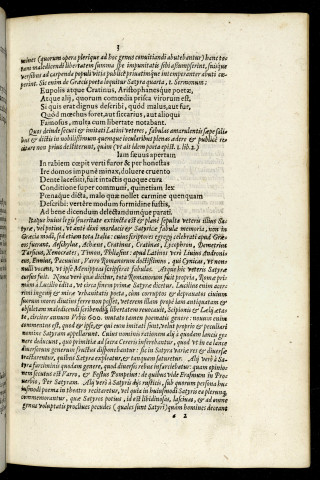 3
mines (quorum opera plerique ad hoc genus conuitiandi abutebantur) hanc to-
tam maledicendi libertatem summa spe impunitatis sibi assumpserint, suisque
versibus ad carpenda populi vitia publicè priuatimque intemperanter abuti cœ-
perint. Sic enim de Græcis poeta loquitur Satyra quarta, 1. Sermonum:
Eupolis atque Cratinus, Aristophanesque poetæ,
Atque alij, quorum comœdia prisca virorum est,
Si quis erat dignus describi, quod malus, aut fur,
Quòd mœchus foret, aut siccarius, aut alioqui
Famosus, multa cum libertate notabant.
Quos deinde secuti & imitati Latini veteres, fabulas amarulentis sæpe sali-
bus & dictis in nobilissimum quemque iocularibus plenas ædere & publicè re-
citare non prius destiterunt, quàm (vt ait idem poeta epist. 1. lib. 2)
Iam sæuus apertam
In rabiem cœpit verti furor & per honestas
Ire domos impunè minax, doluere cruento
Dente lacessiti, fuit intactis quoque cura
Conditione super communi, quinetiam lex
Pœnaque dicta, malo quæ nollet carmine quenquam
Describi: vertêre modum formidine fustis,
Ad bene dicendum delectandumque parati.
Itaque huius legis seueritate extincta est & planè sepulta veteris illius Sa-
tyræ, vel potius, vt antè dixi mordacis & Satyricæ fabulæ memoria, non in
Græcia modò, sed etiam tota Italia: cuius scriptores egregij celebrati apud Græ-
cos fuerunt, Æschylus, Achæus, Cratinus, Lycophron, Demetrius
Tarsicus, Xenocrates, Timon, Phliasius: apud Latinos verò Liuius Andronic-
us, Ennius, Pacuuius, Varro Romanorum doctissimus, qui Cynicas, vt non-
nulli vocant, vel ipse Menippeas scripserat fabulas. Atque hic veteris Satyræ
cursus fuit. Noua verò quæ dicitur, tota Romanorum fuit propria, Romæ pri-
mùm à Lucilio edita, vt circa finem primæ Satyræ dicetur. Lucilius enim acer-
rimi ingenij & miræ vrbanitatis poeta, cùm corruptos & deprauatos ciuium
suorum mores diutius ferre non posset, veterem illam propè iam antiquatam &
obsoletam maledicendi scribendi libertatem reuocauit, Scipionis & Lælij æta-
te, circiter annum Vrbis 600. mutato tamen poematis genere: nouum enim
commentus est, quod & ipse, & qui eum imitati sunt, veluti proprio & peculiari
nomine Satyram appellarunt. Cuius nominis rationem alij à quodam lancis ge-
nere deducunt, quo primitiæ ad sacra Cereris inferebantur, quod vt in ea lance
diuersarum frugum fructus disponebantur: sic in Satyra variæ res & diuersæ
tractarentur, quibus Satyra expleatur & tanquam saturetur. Alij verò à Sa-
tyra farciminis quodam genere, quod diuersis rebus infarciebatur: quam opinio-
nem secutus est Varro, & Festus Pompeius: de quibus vide Erasmum in Pro-
uerbio, Per Satyram. Alij verò à Satyris dijs rusticis, sub quorum persona hu-
iusmodi poema in theatro recitaretur, vel quia in huiusmodi Satyris ea plerunque
commemorarentur, quæ Satyros potius, id est libidinosos, lasciuos, & ad omne
genus voluptatis procliues pecudes (quales sunt Satyri) quàm homines deceant
a 2